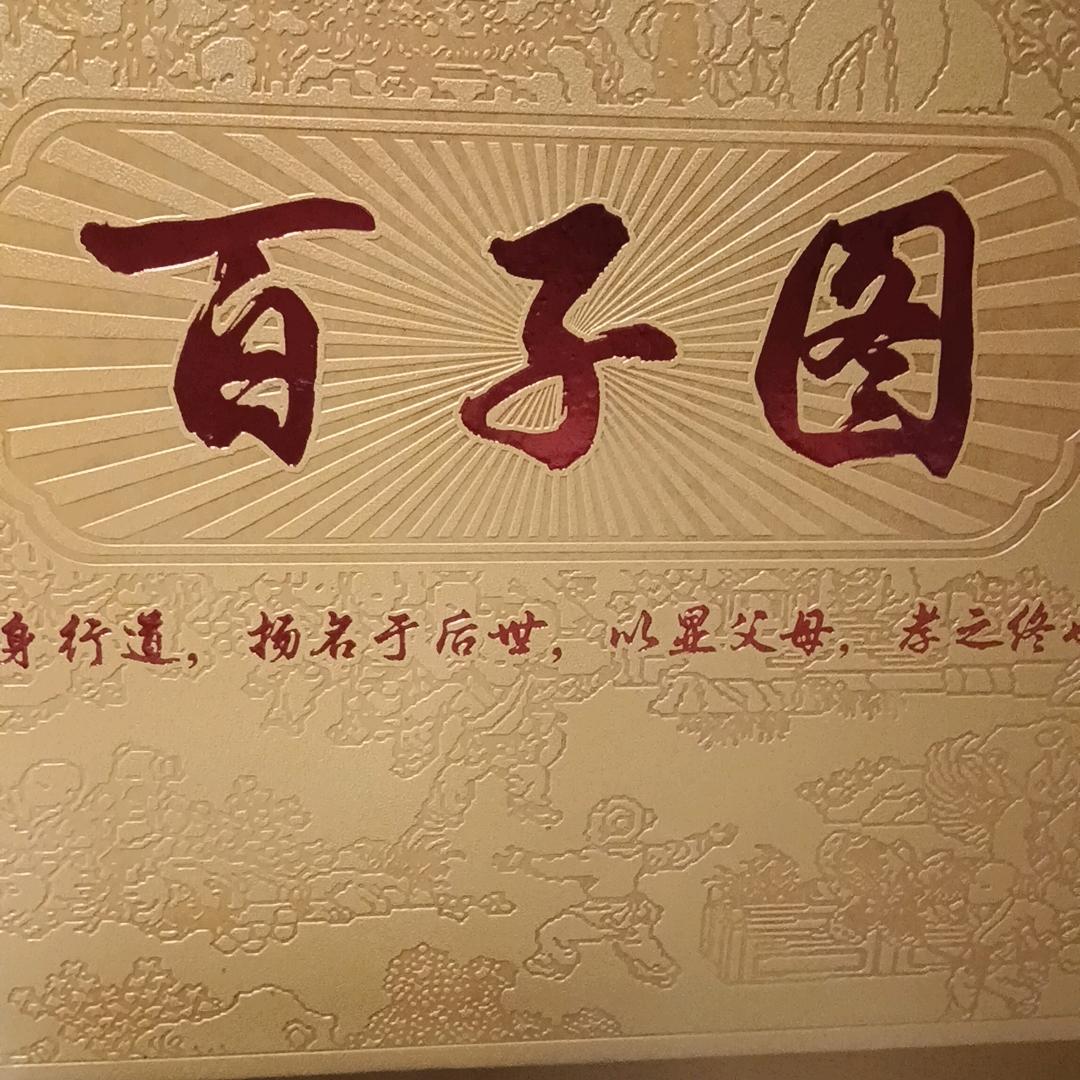 百子图
身行道，扬名于后世，以显父母，孝之终